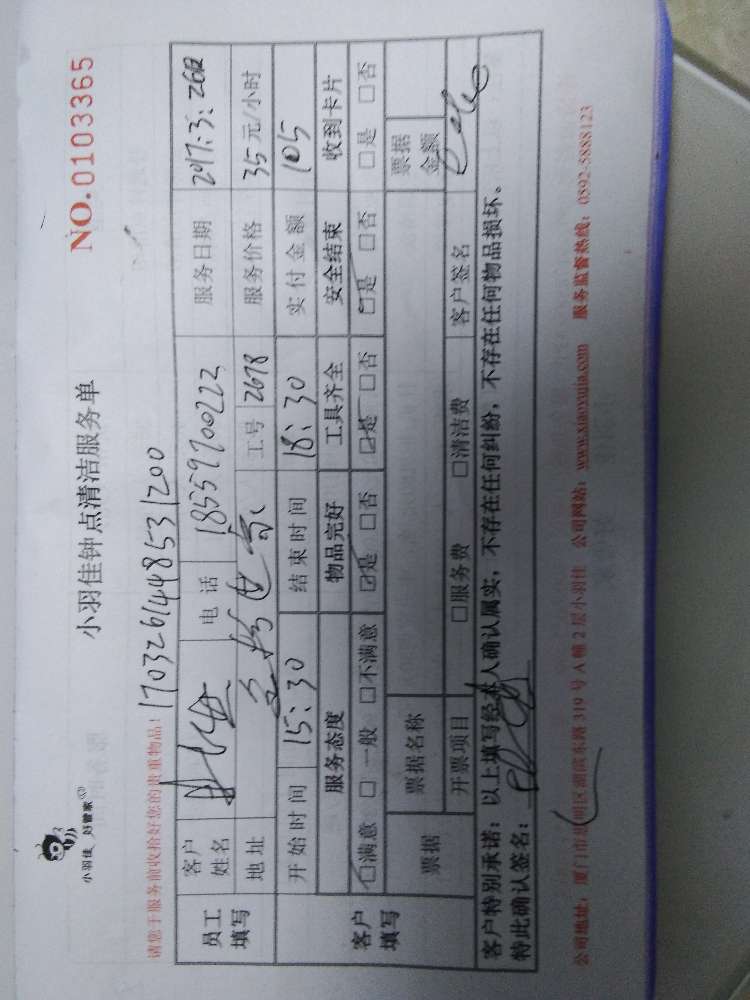 小羽佳 好管家
小羽佳钟点清洁服务单
NO.0103365
请您于服务前收拾好您的贵重物品!
1703261448531200
员工填写
客户姓名
电话 18559700222
服务日期 2017.3.26日
地址
工号 2678
服务价格 35元/小时
客户填写
开始时间 15:30
结束时间 18:30
实付金额 105
服务态度 物品完好 工具齐全 安全结束 收到卡片
☑满意 □一般 □不满意 ☑是 □否 ☑是 □否 ☑是 □否 □是 □否
票据 票据名称 票据金额
开票项目 □服务费 □清洁费 客户签名
客户特别承诺:以上填写经本人确认属实,不存在任何纠纷,不存在任何物品损坏。
特此确认签名:
公司地址:厦门市思明区湖滨东路319号A幢2层小羽佳 公司网站:www.xiaoyujia.com 服务监督热线:0592-5888123